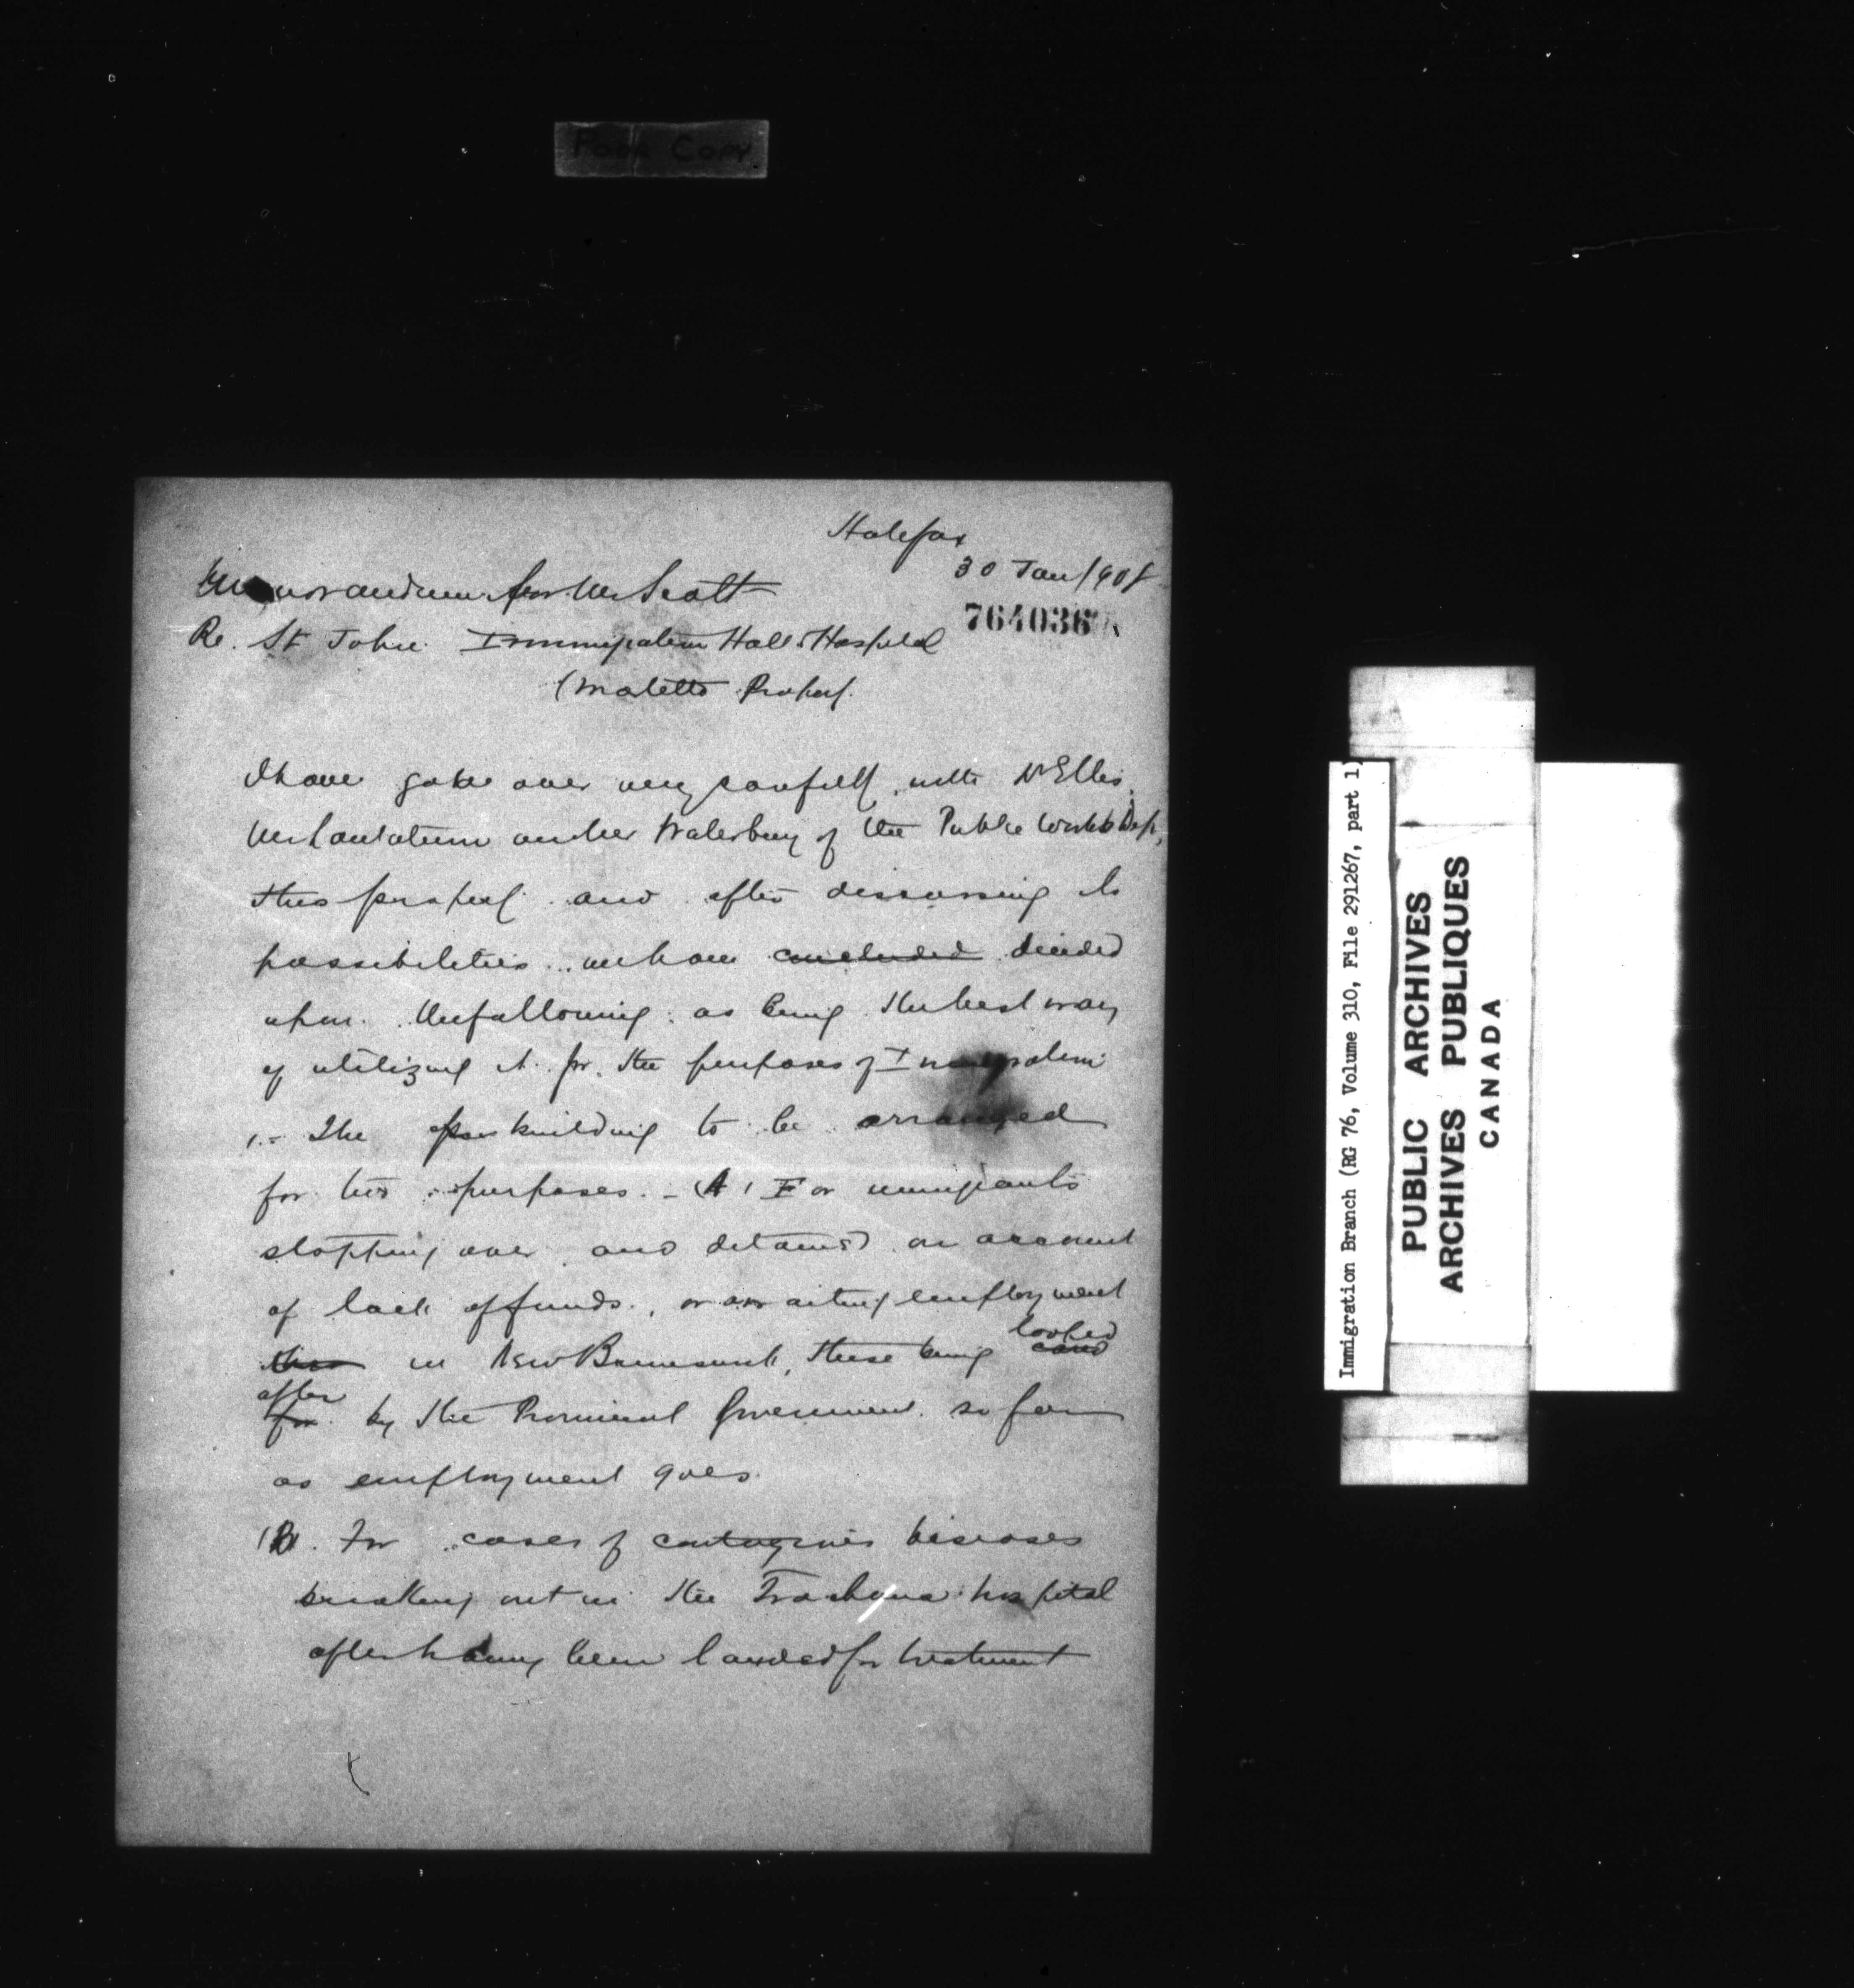 Poor Copy
Halifax
30 Jan/908
Memorandum for Mr Scott
764036
Re. St John Immigration Hall & Hospital
(Maletts Property.
I have gone over very carefully with Dr Ellis,
Mr Lantalum and Mr Waterbury of the Public Works Dep,
this property and after discussing its
possibilities we have concluded decided
upon the following as being the best way
of utilizing it for the purposes of Immigration
1.- The building to be arranged
for two purposes. - (A) For immigrants
stopping over and detained on account
of lack of funds, or awaiting employment
in New Brunswick, these being looked
after for by the Provincial Government so far
as employment goes
(B). For cases of contagious diseases
breaking out in the Trachoma hospital
after having been landed for treatment
Immigration Branch (RG 76, Volume 310, File 291267, part 1)
PUBLIC ARCHIVES
ARCHIVES PUBLIQUES
CANADA